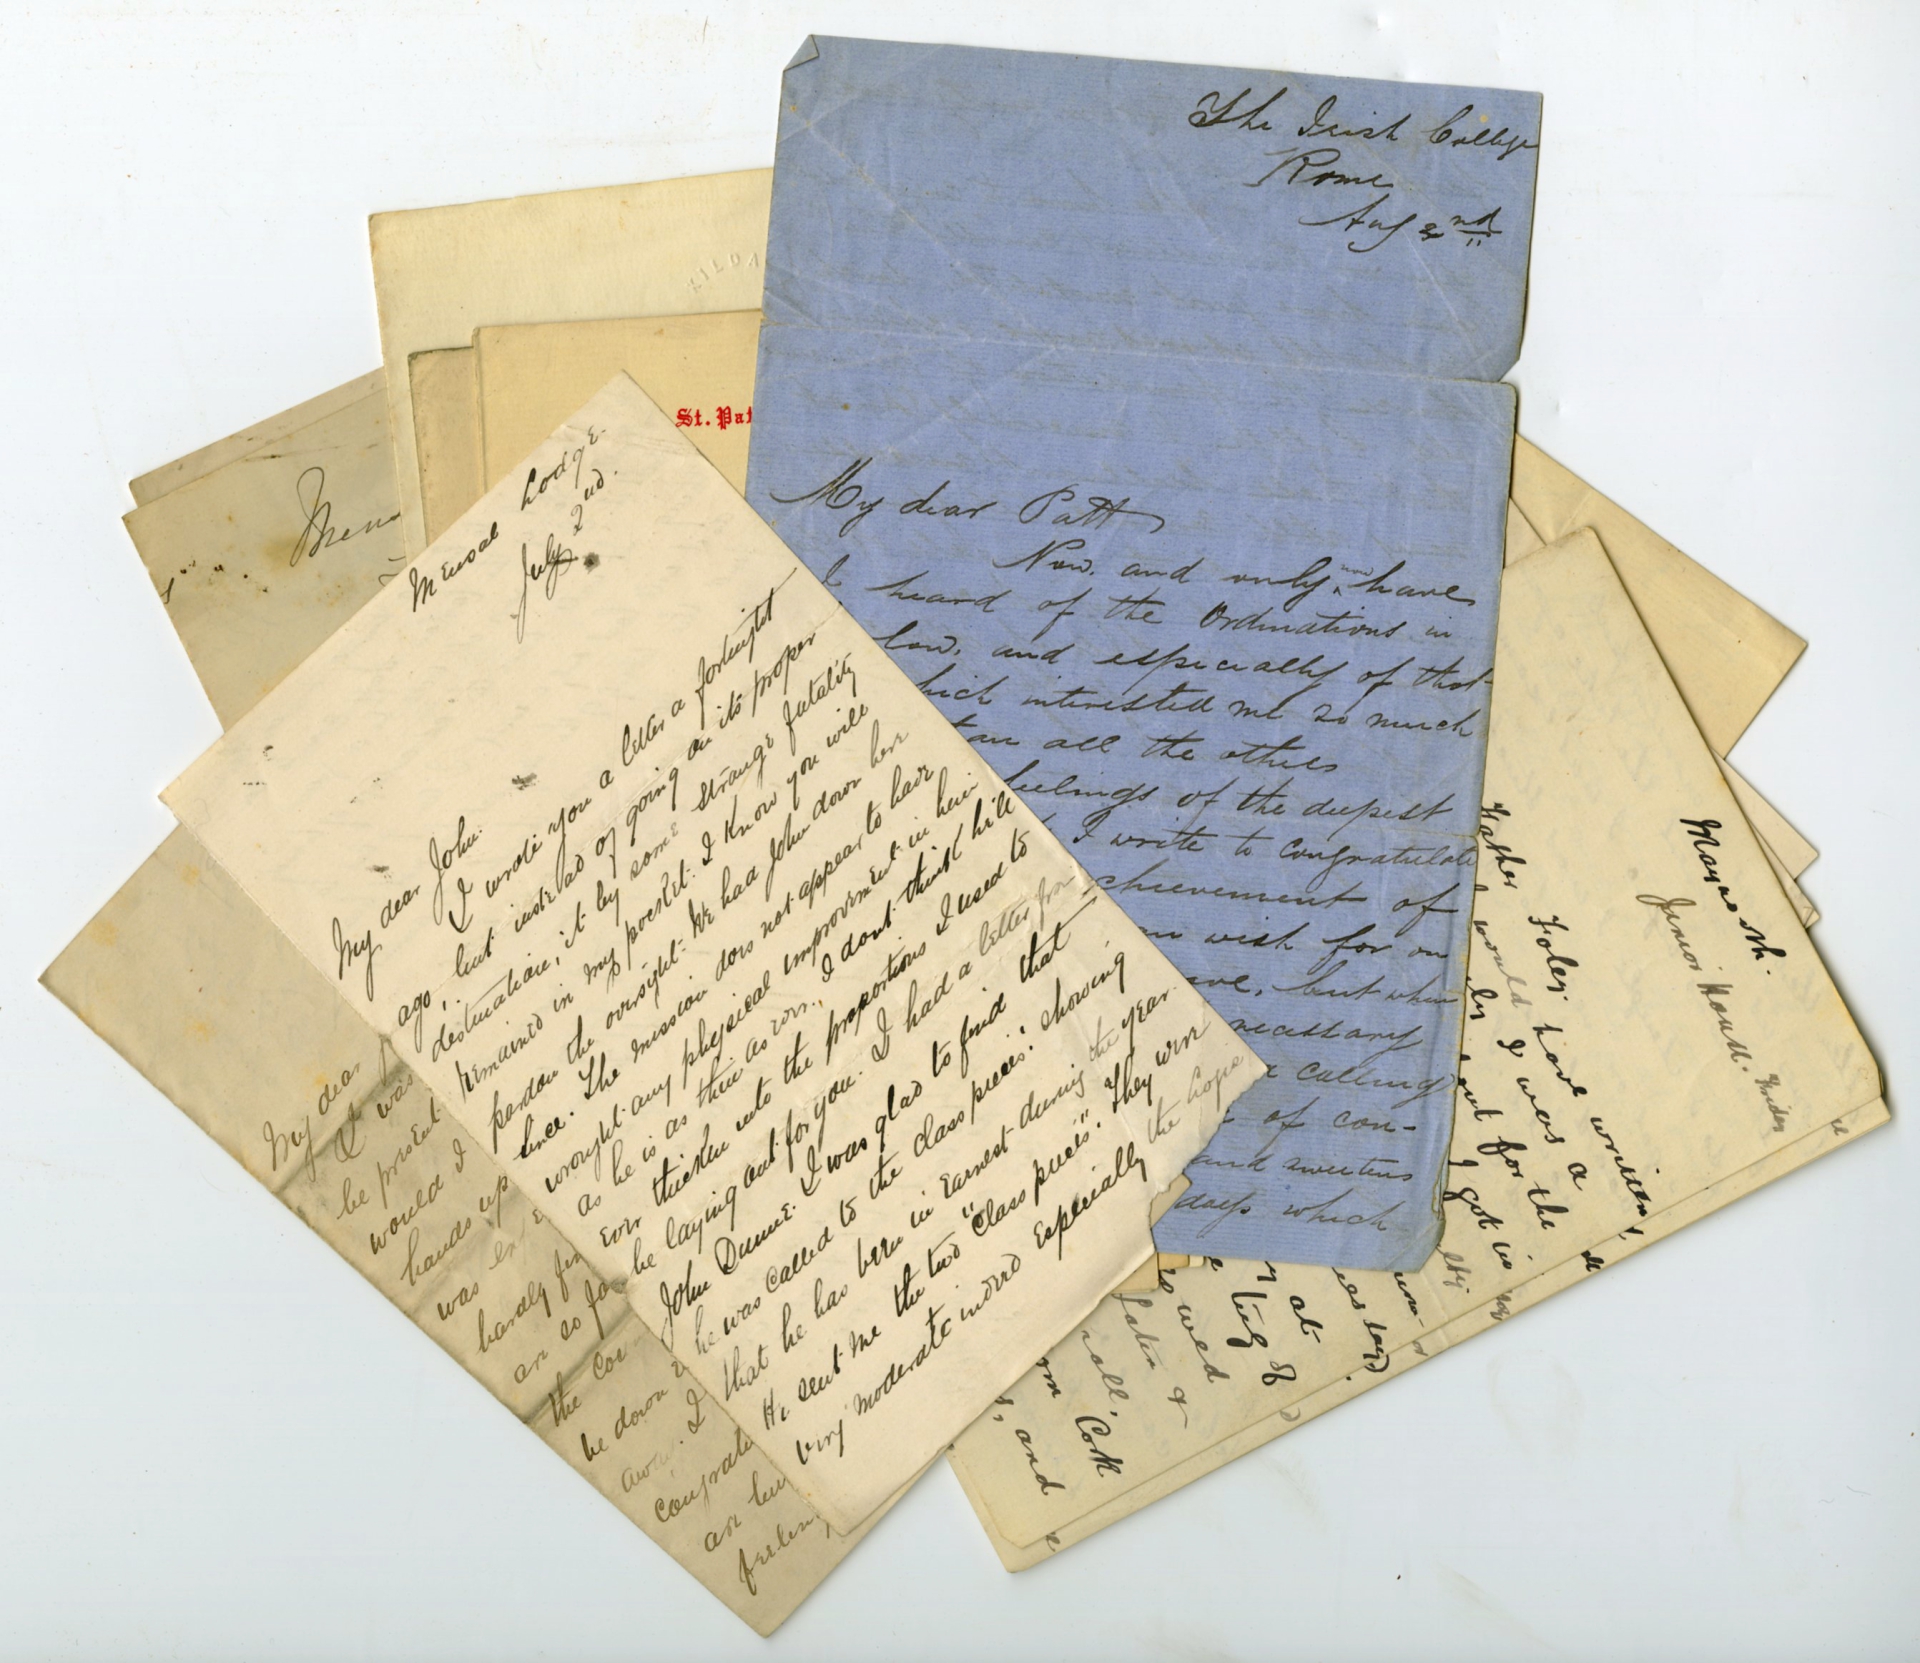 The Irish College
Rome
Aug 2nd
My dear Patt
Now, and only now have
I heard of the Ordinations in
low, and especially of that
hich interested me so much
than all the others
feelings of the deepest
I write to congratulate
chievement of
wish for on
ave, but when
necessary
calling
of con-
and sweetens
days which
KILDA
St. Pat
Mensal Lodge.
July 2nd.
My dear John.
I wrote you a letter a fortnight
ago, but instead of going on its proper
destination, it by some strange fatality
remained in my pocket. I know you will
pardon the oversight. We had John down here
since. The mission does not appear to have
wrought any physical improvement in him
as he is as thin as ever. I dont think hill
ever thicken into the proportions I used to
be laying out for you. I had a letter from
John Dunne. I was glad to find that
he was called to the class pieces: showing
that he has been in earnest during the year.
He sent me the two "class pieces". They were
very moderate indeed especially the
My dear
I was
be present
would I
hands up
was
hardly
are so far
the
be down
away. I
congratu
are
feelin
Maynooth.
Junior House.
Father Foley have written
would I was a
but for the
I got in
at
time of
owed
later &
Cork
, and